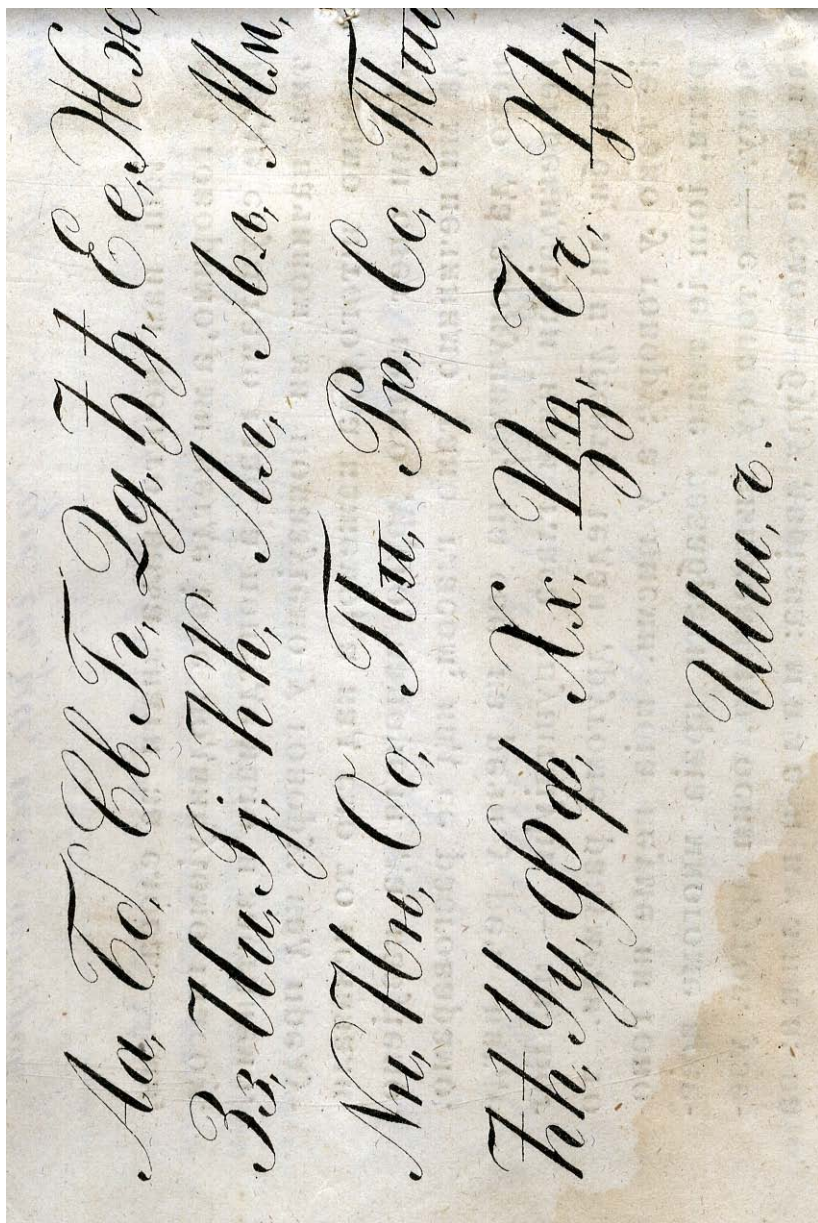 Аа, Бб, Вв, Гг, Дд, Ђђ, Ее, Жж,
Зз, Ии, Јј, Кк, Лл, Љљ, Мм,
Нн, Њњ, Оо, Пп, Рр, Сс, Тт,
Ћћ, Уу, Фф, Хх, Цц, Чч, Џџ,
Шш, ъ.